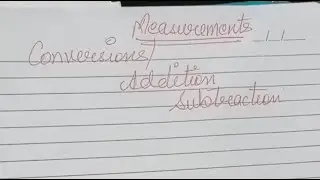 Measurements __/__/__
Conversions/
Addition
Subtraction